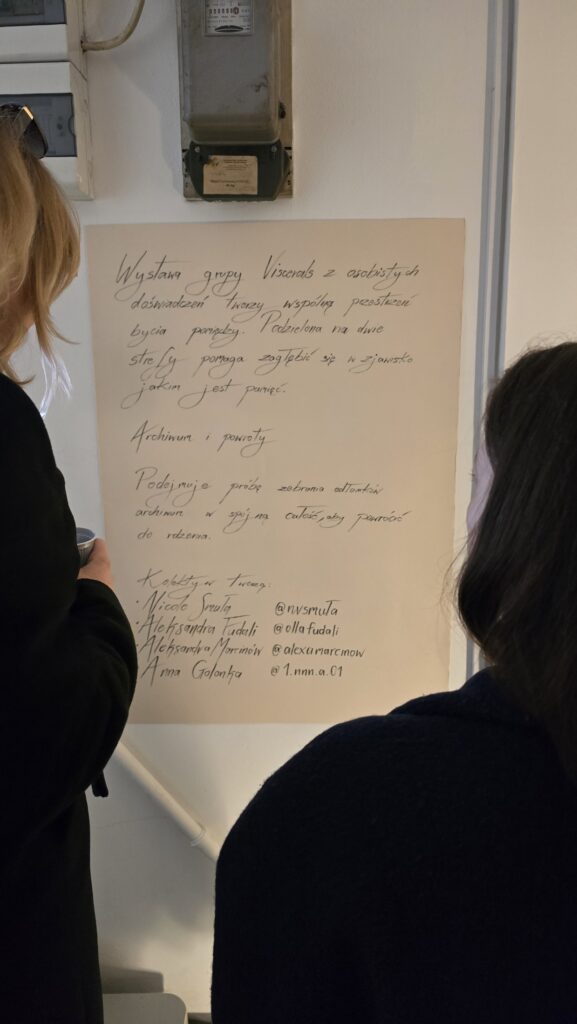 Wystawa grupy Viscerals z osobistych
doświadczeń tworzy wspólną przestrzeń
bycia pomiędzy. Podzielona na dwie
strefy pomaga zagłębić się w zjawisko
jakim jest pamięć.
Archiwum i powroty
Podejmuje próbę zebrania odłamków
archiwum w spójną całość, aby powrócić
do rdzenia.
Kolektyw tworzą:
· Nicole Smuła @nvsmuła
· Aleksandra Fudali @ollafudali
· Aleksandra Marcinów @alexamarcinow
· Anna Golonka @1.nnn.a.01